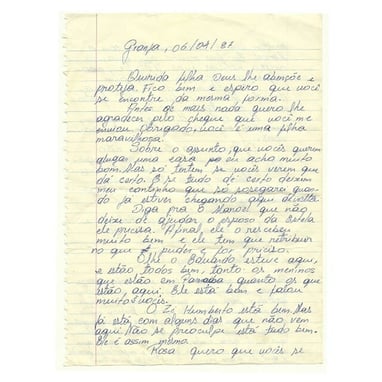 Granja, 06/04/87
Querida filha Deus lhe abençoe e
proteja. Fico bem e espero que você
se encontre da mesma forma.
Antes de mais nada quero lhe
agradecer pelo cheque que você me
enviou. Obrigado, você é uma filha
maravilhosa.
Sobre o assunto, que vocês querem
alugar uma casa eu acho muito
bom. Mas só tentem se vocês verem que
dá certo. E se tudo de certo deixem
meu cantinho que só sossegarei quan-
do já estiver chegando aqui de volta.
Diga pra o Manoel que não
deixe de ajudar, o esposo da
ele precisa. Afinal, ele o recebeu
muito bem e ele tem que retribuir
no que puder e for preciso.
Olhe o Eduardo esteve aqui,
e estão, todos bem, tanto os meninos
que estão em quanto os que
estão, aqui. Ele está bem e falou
muito vocês.
O Zé Humberto está bem. Mas
já está, com alguns dias que não vem
aqui. Não se preocupe está tudo bem.
Ele é assim mesmo.
Rosa quero que vocês se